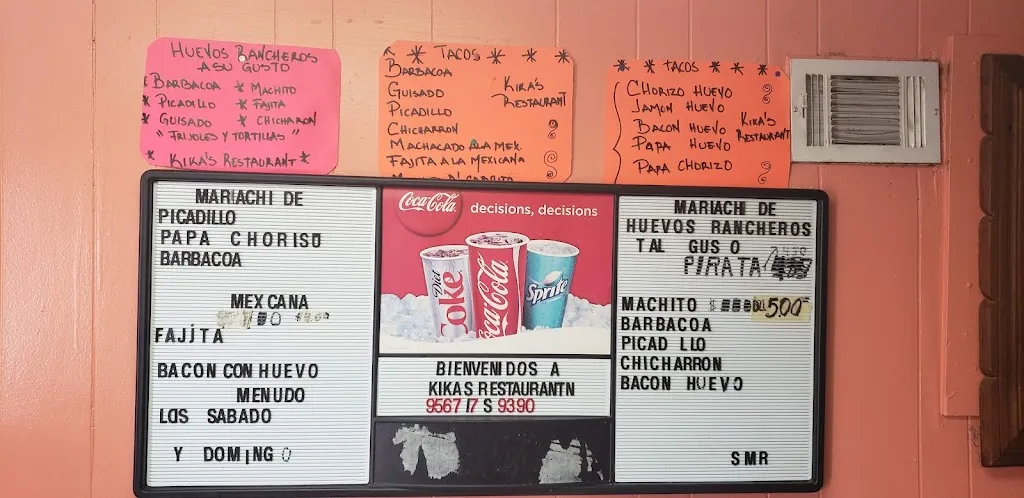 HUEVOS RANCHEROS
A SU GUSTO
* BARBACOA * MACHITO
* PICADILLO * FAJITA
* GUISADO * CHICHARON
"FRIJOLES Y TORTILLAS"
* KIKA'S RESTAURANT *
* TACOS * * *
BARBACOA
GUISADO
PICADILLO
CHICHARRON
MACHACADO A LA MEX.
FAJITA A LA MEXICANA
KIKA'S
RESTAURANT
* * TACOS * * *
CHORIZO HUEVO
JAMON HUEVO
BACON HUEVO
PAPA HUEVO
PAPA CHORIZO
KIKA'S
RESTAURANT
MARIACHI DE
PICADILLO
PAPA CHORISO
BARBACOA
MEXCANA
FAJITA
BACON CON HUEVO
MENUDO
LOS SABADO
Y DOMINGO
Coca-Cola
decisions, decisions
Diet Coke
Coca-Cola
Sprite
BIENVENIDOS A
KIKAS RESTAURANTN
9567 I7 S 9390
MARIACHI DE
HUEVOS RANCHEROS
TAL GUS O
PIRATA
MACHITO 5.00
BARBACOA
PICAD LLO
CHICHARRON
BACON HUEVO
SMR